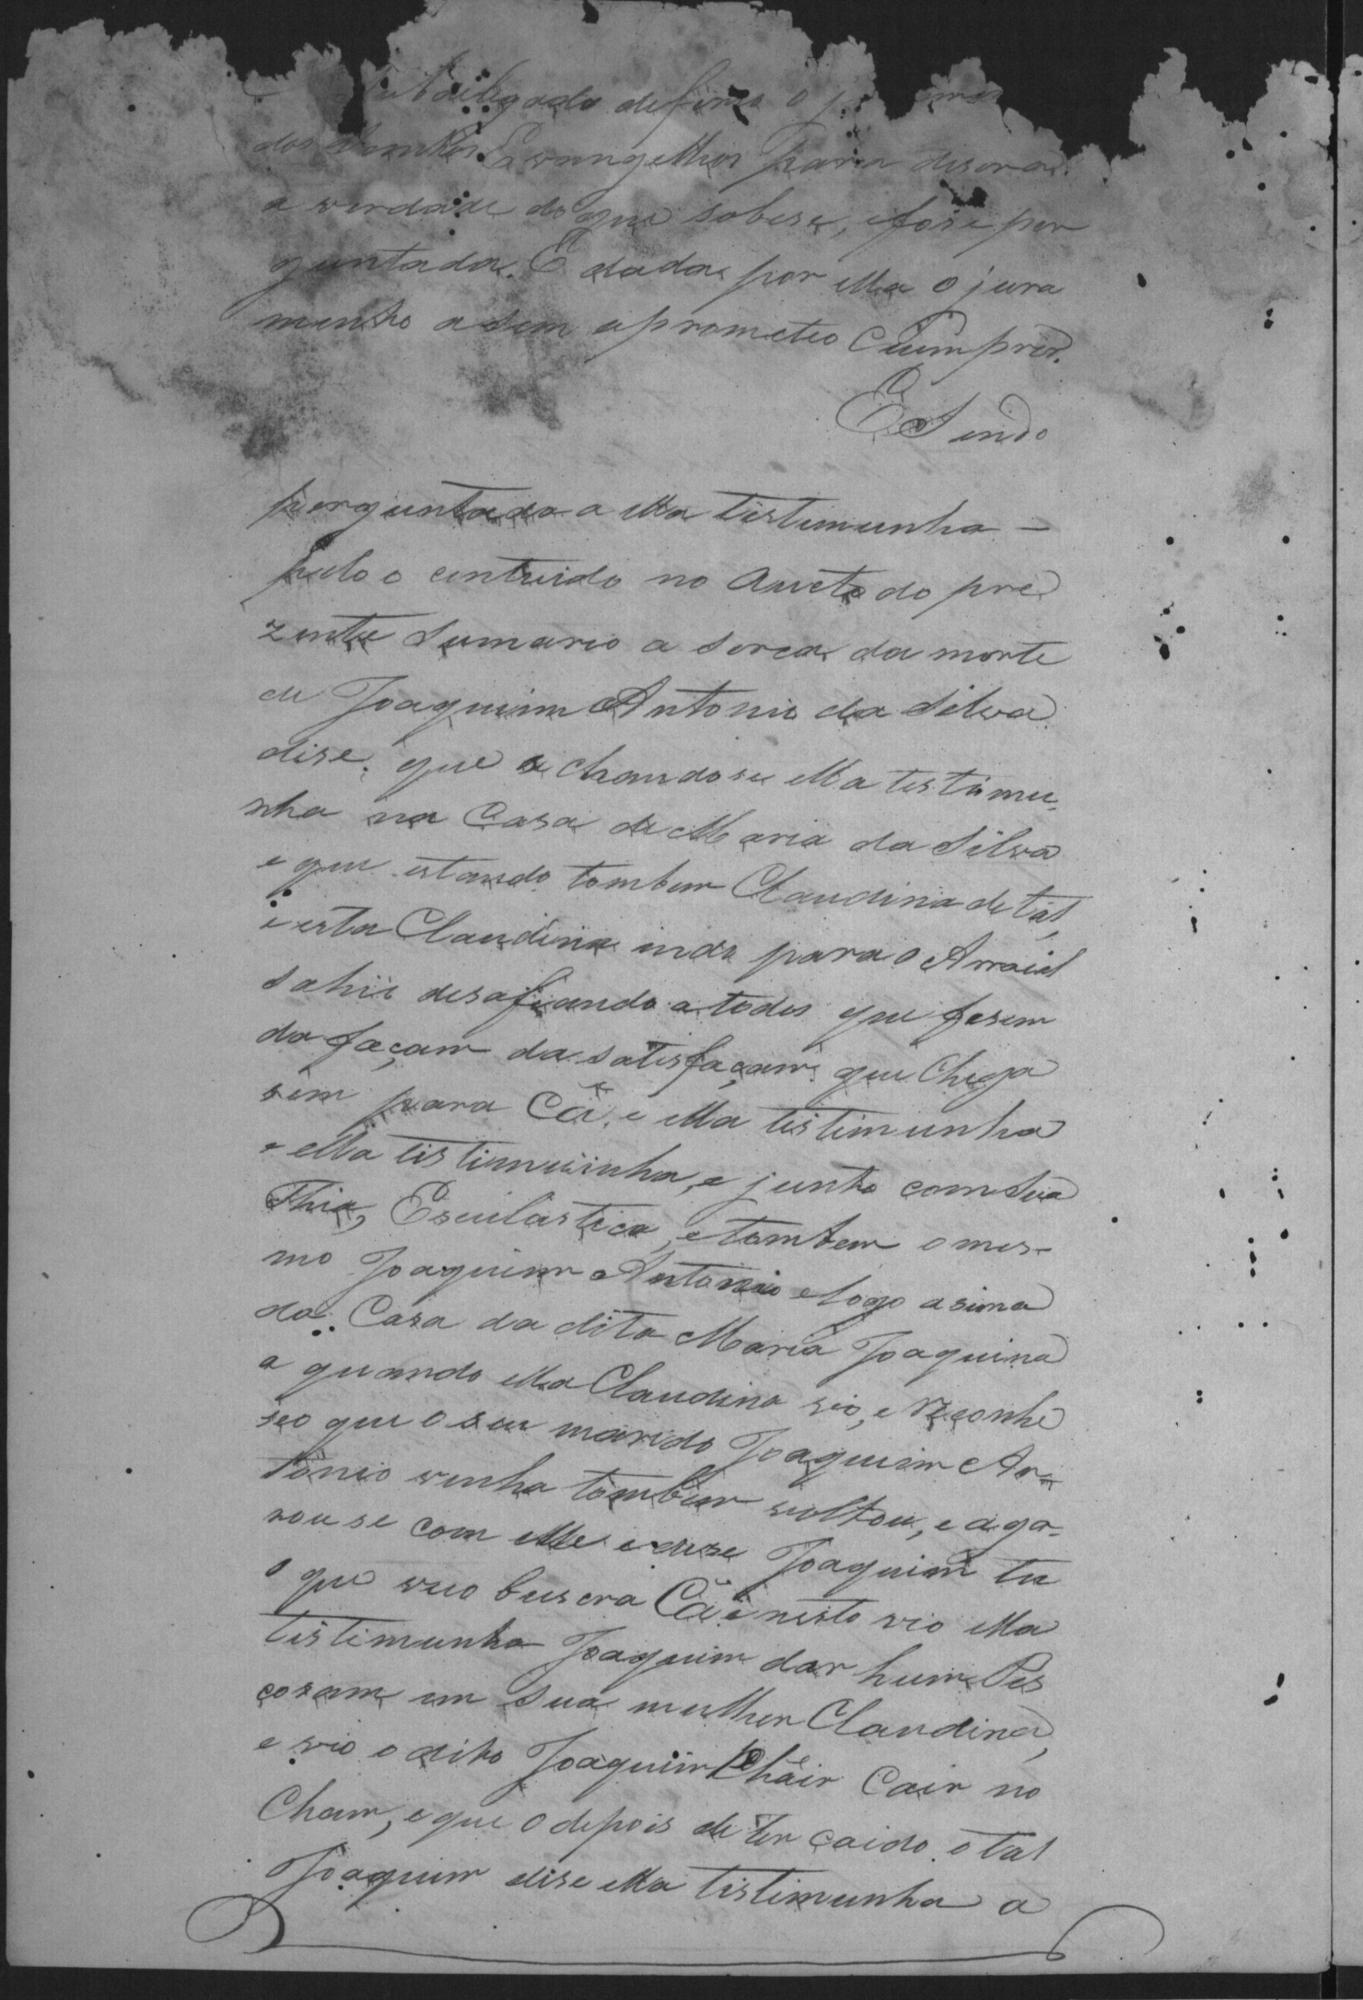 Subdelegado defirio o
dos Santos Evangelhos para disera
a verdade do que sobese, e fose per
guntada. E dada por ella o jura
mento asim o prometeo Cumprir.
E Sendo
perguntada a ella testemunha –
pelo o contuido no Aucto do pre
zente Sumario a serca da morte
de Joaquim Antonio da Silva
dise, que a chandose ella testimu-
nha na Casa de Maria da Silva
e que estando tombem Claudina de tal,
e esta Claudina indo para o Arraial
sahio desafiando a todos que fosem
da façam da satisfaçam que Chega
sem para Cá, e ella testimunha
e ella testimuinha, e junto com sua
Thia, Esculastica, e tambem o mes-
mo Joaquim Antonio e logo asima
da Casa da dita Maria Joaquina
a quando ella Claudina vio, e Reconhe
seo que o seu marido Joaquim An-
tonio vinha tombem voltou, e aga-
rouse com elle e dise Joaquim tu
o que veio buscra Cá e nisto vio ella
testimunha Joaquim dar hum Pes
cosam em sua mulher Claudina,
e vio o dito Joaquim Cair no
Cham, e que o depois de ter caido o tal
Joaquim dise ella testimunha a